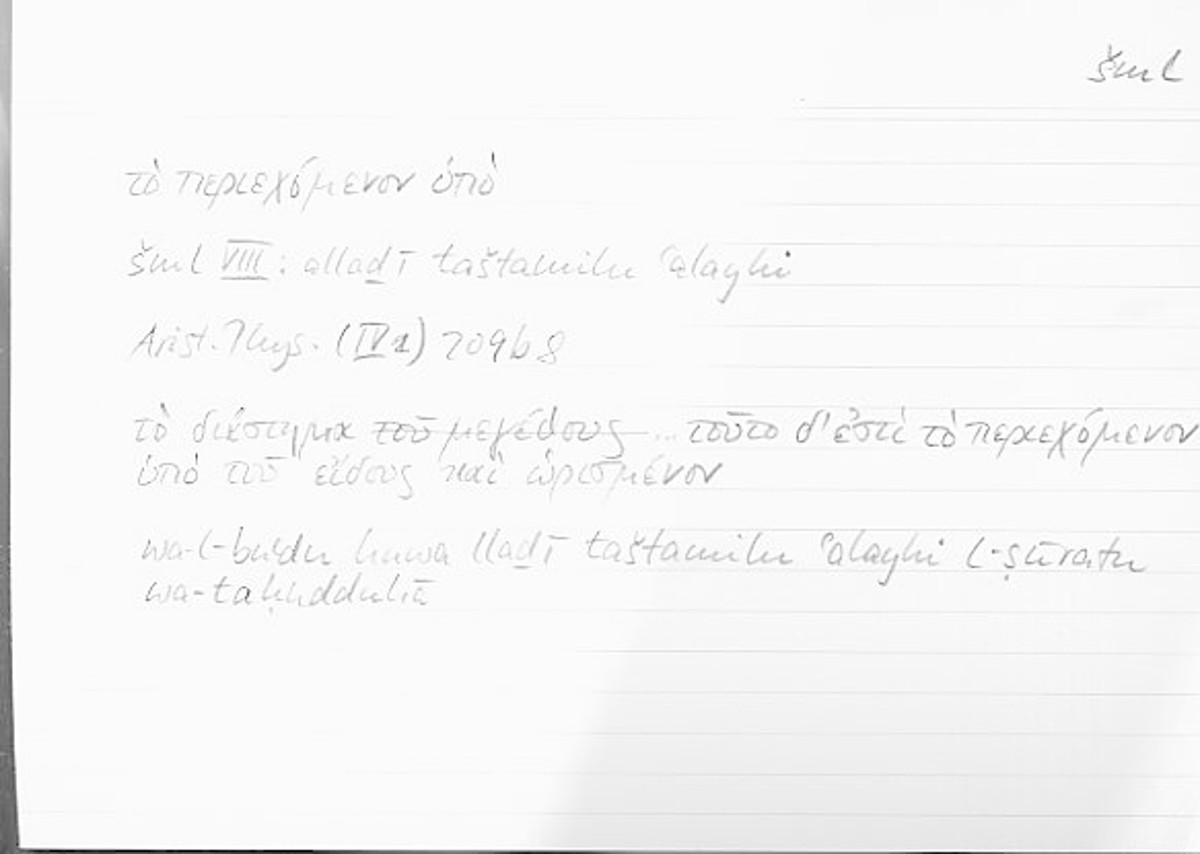 šml
τὸ περιεχόμενον ὑπὸ
šml VIII: alladī taštamilu ʿalayhi
Arist. Phys. (IV 2) 209b8
τὸ διάστημα τοῦ μεγέθους ... τοῦτο δ' ἐστὶ τὸ περιεχόμενον
ὑπὸ τοῦ εἴδους καὶ ὡρισμένον
wa-l-buʿdu huwa lladī taštamilu ʿalayhi l-ṣūratu
wa-taḥudduhā